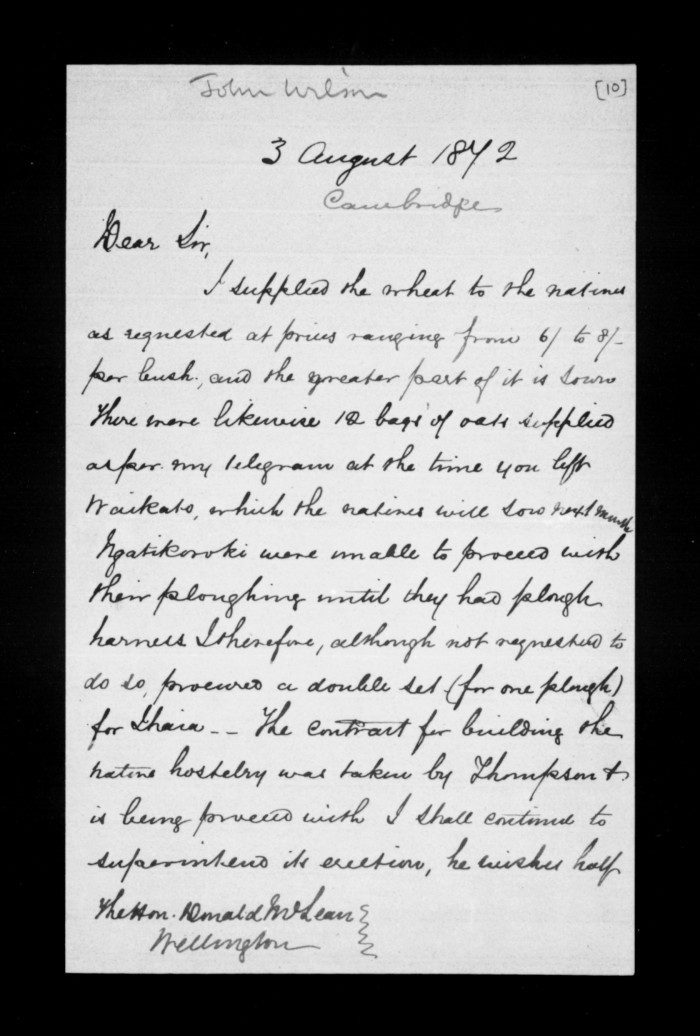 John Wilson
[10]
3 August 1872
Cambridge
Dear Sir,
I supplied the wheat to the natives
as requested at prices ranging from 6/ to 8/-
per bush., and the greater part of it is sown
There were likewise 12 bags of oats supplied
as per my telegram at the time you left
Waikato, which the natives will sow next month
Ngatikoroki were unable to proceed with
their ploughing until they had plough
harness I therefore, although not requested to
do so, procured a double set (for one plough)
for Ihaia -- The contract for building the
native hostelry was taken by Thompson &
is being proceed with I shall continue to
superintend its erection, he wishes half
The Hon. Donald McLean
Wellington